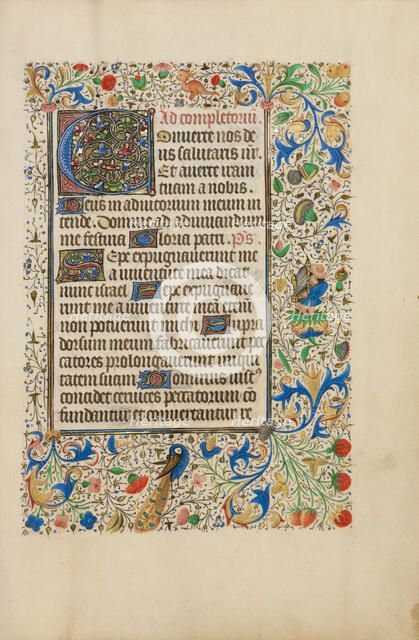 Ad completorium
Converte nos de
us salutaris nr̄.
Et averte iram
tuam a nobis.
Deus in adiutorium meum in
tende. Domine ad adiuvandum
me festina Gloria patri. P̄s.
Sepe expugnaverunt me
a iuventute mea dicat
nunc israel Sepe expugnave
runt me a iuventute mea etenim
non potuerunt michi Supra
dorsum meum fabricaverunt pec
catores prolongaverunt iniqui
tatem suam Dominus iustꝰ
concidet cervices peccatorum cō
fundantur et convertantur re